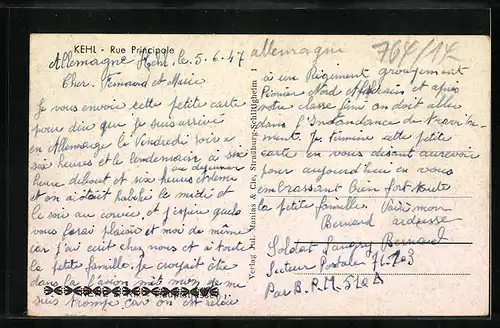 KEHL - Rue Principale
Allemagne Kehl. le. 5. 6. 47
allemagne
764/14
Cher. Fernand et Marie
Je vous envoir cette petite carte
pour dire que je suis arrivé
en Allemagne le Vendredi soir a
six heures et le lendemain à six
heure debout et six heures
et on a était habilé le midi et
le soir au corvé, et j'espère quela
vous ferai plaisir et moi de même
car j'ai écrit chez nous et à toute
la petite famille. Je croyait être
dans la mes je me
suis trompé car on est
à un Régiment groupement
Nord Africain et après
votre classe fini on doit aller
dans l'Instandance de travite-
ment. Je termine cette petite
carte en vous disant aurevoir
pour aujourd'hui en vous
embrassant bien fort toute
la petite famille. Voici mon
Bernard adresse
Soldat Bernard
Secteur Postale 71.703
Par B.P.M. 510 A
Verlag Aut. & Cie, Strasburg-Schiltigheim